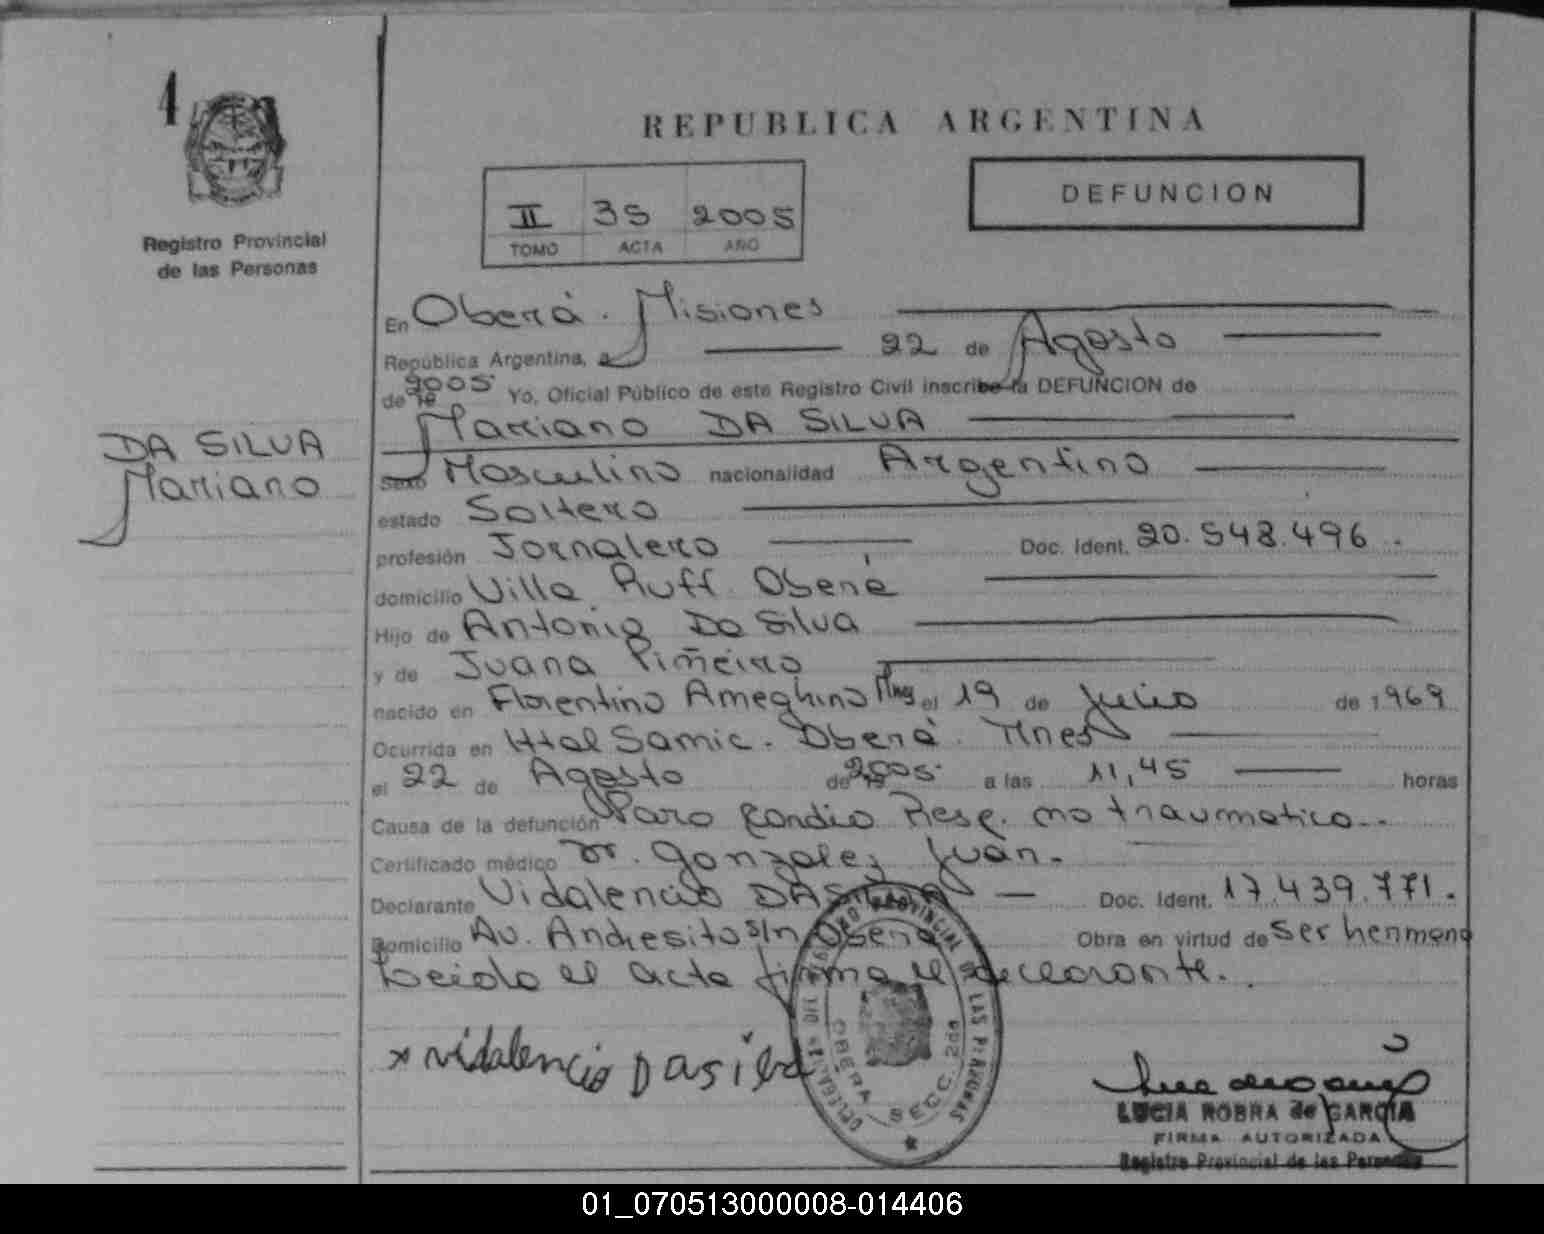 1
Registro Provincial
de las Personas
DA SILVA
Mariano
REPUBLICA ARGENTINA
DEFUNCION
II 35 2005
TOMO ACTA AÑO
En Oberá. Misiones
República Argentina, a 22 de Agosto
de 19 2005 Yo, Oficial Público de este Registro Civil inscribe la DEFUNCION de
Mariano DA SILVA
Sexo Masculino nacionalidad Argentino
estado Soltero
profesión Jornalero Doc. Ident. 20.548.496
domicilio Villa Ruff Oberá
Hijo de Antonio Da Silva
y de Juana Piñeiro
nacido en Florentino Ameghino Mnes el 19 de Julio de 1969
Ocurrida en Htal Samic. Oberá. Mnes
el 22 de Agosto de 19 2005 a las 11,45 horas
Causa de la defunción Paro Cardio Resp. no traumatico
Certificado médico Dr. Gonzalez Juan.
Declarante Vidalencio DASILVA Doc. Ident. 17.439.771.
Domicilio Av. Andresito s/n Oberá Obra en virtud de ser hermano
Leida el acta firma el declarante.
x vidalencio Dasilva
DELEGADO DEL REGISTRO PROVINCIAL DE LAS PERSONAS
OBERA SECC. 2da
LUCIA ROBRA de GARCIA
FIRMA AUTORIZADA
Registro Provincial de las Personas
01_070513000008-014406